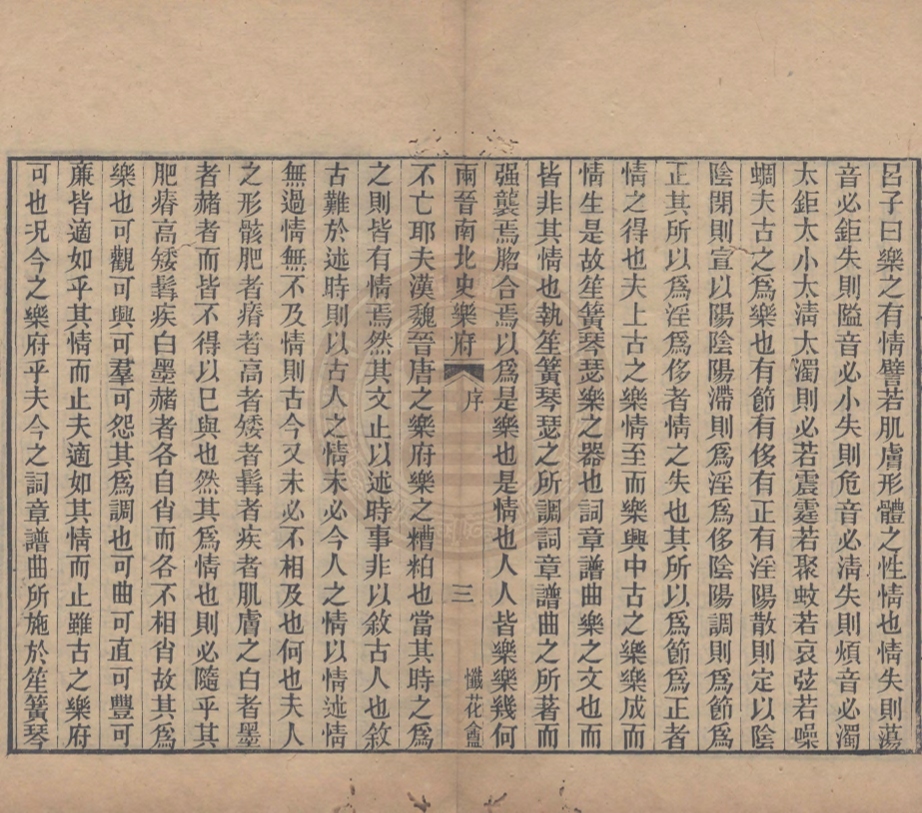 呂子曰樂之有情譬若肌膚形體之性情也情失則蕩
音必鉅失則隘音必小失則危音必淸失則煩音必濁
太鉅太小太淸太濁則必若震霆若聚蚊若哀弦若噪
蜩夫古之爲樂也有節有侈有正有淫陽散則定以陰
陰閉則宣以陽陰陽滯則爲淫爲侈陰陽調則爲節爲
正其所以爲淫爲侈者情之失也其所以爲節爲正者
情之得也夫上古之樂情至而樂興中古之樂樂成而
情生是故笙簧琴瑟樂之器也詞章譜曲樂之文也而
皆非其情也執笙簧琴瑟之所調詞章譜曲之所著而
强襲焉脗合焉以爲是樂也是情也人人皆樂樂幾何
兩晉南北史樂府 序 三 懺花盦
不亡耶夫漢魏晉唐之樂府樂之糟粕也當其時之爲
之則皆有情焉然其文止以述時事非以敘古人也敘
古難於述時則以古人之情未必今人之情以情述情
無過情無不及情則古今又未必不相及也何也夫人
之形骸肥者瘠者高者矮者髯者疾者肌膚之白者墨
者赭者而皆不得以巳與也然其爲情也則必隨乎其
肥瘠高矮髯疾白墨赭者各自肖而各不相肖故其爲
樂也可觀可興可羣可怨其爲調也可曲可直可豐可
廉皆適如乎其情而止夫適如其情而止雖古之樂府
可也况今之樂府乎夫今之詞章譜曲所施於笙簧琴